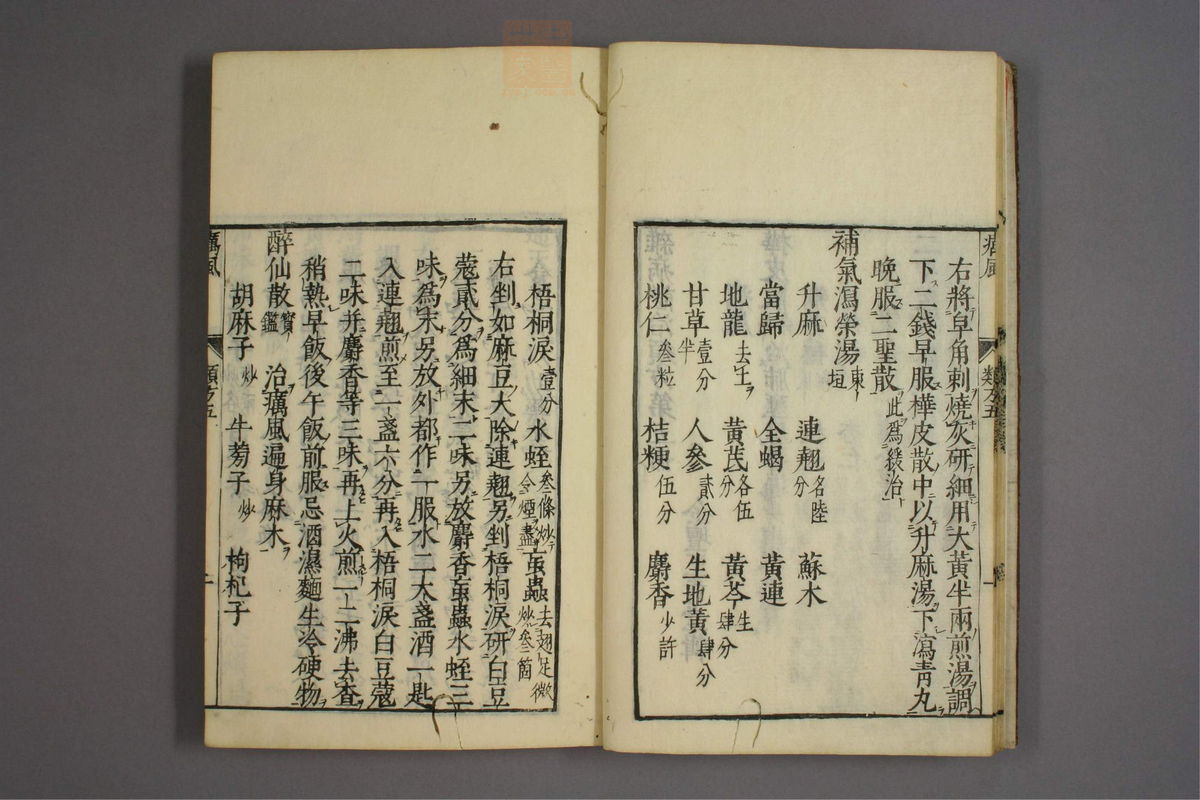 癘風 類方五 一
右將皁角剌燒灰研細用大黃半兩煎湯調
下二錢早服樺皮散中以升麻湯下瀉靑丸
晚服二聖散此為緩治
補氣瀉榮湯東垣
升麻 連翹各陸分 蘇木
當歸 全蝎 黃連
地龍去土 黃芪各伍分 黃芩生肆分
甘草壹分半 人參貳分 生地黃肆分
桃仁叁粒 桔梗伍分 麝香少許
梧桐淚壹分 水蛭叁條炒令煙盡 䖟蟲去翅足微炒叁箇
右剉如麻豆大除連翹另剉梧桐淚研白豆
蔻貳分為細末二味另放麝香䖟蟲水蛭三
味為末另放外都作一服水二大盞酒一匙
入連翹煎至一盞六分再入梧桐淚白豆蔻
二味并麝香等三味再上火煎一二沸去渣
稍熱早飯後午飯前服忌酒濕麵生冷硬物
醉仙散寶鑑 治癘風遍身麻木
胡麻子炒 牛蒡子炒 枸杞子
癘風 類方五